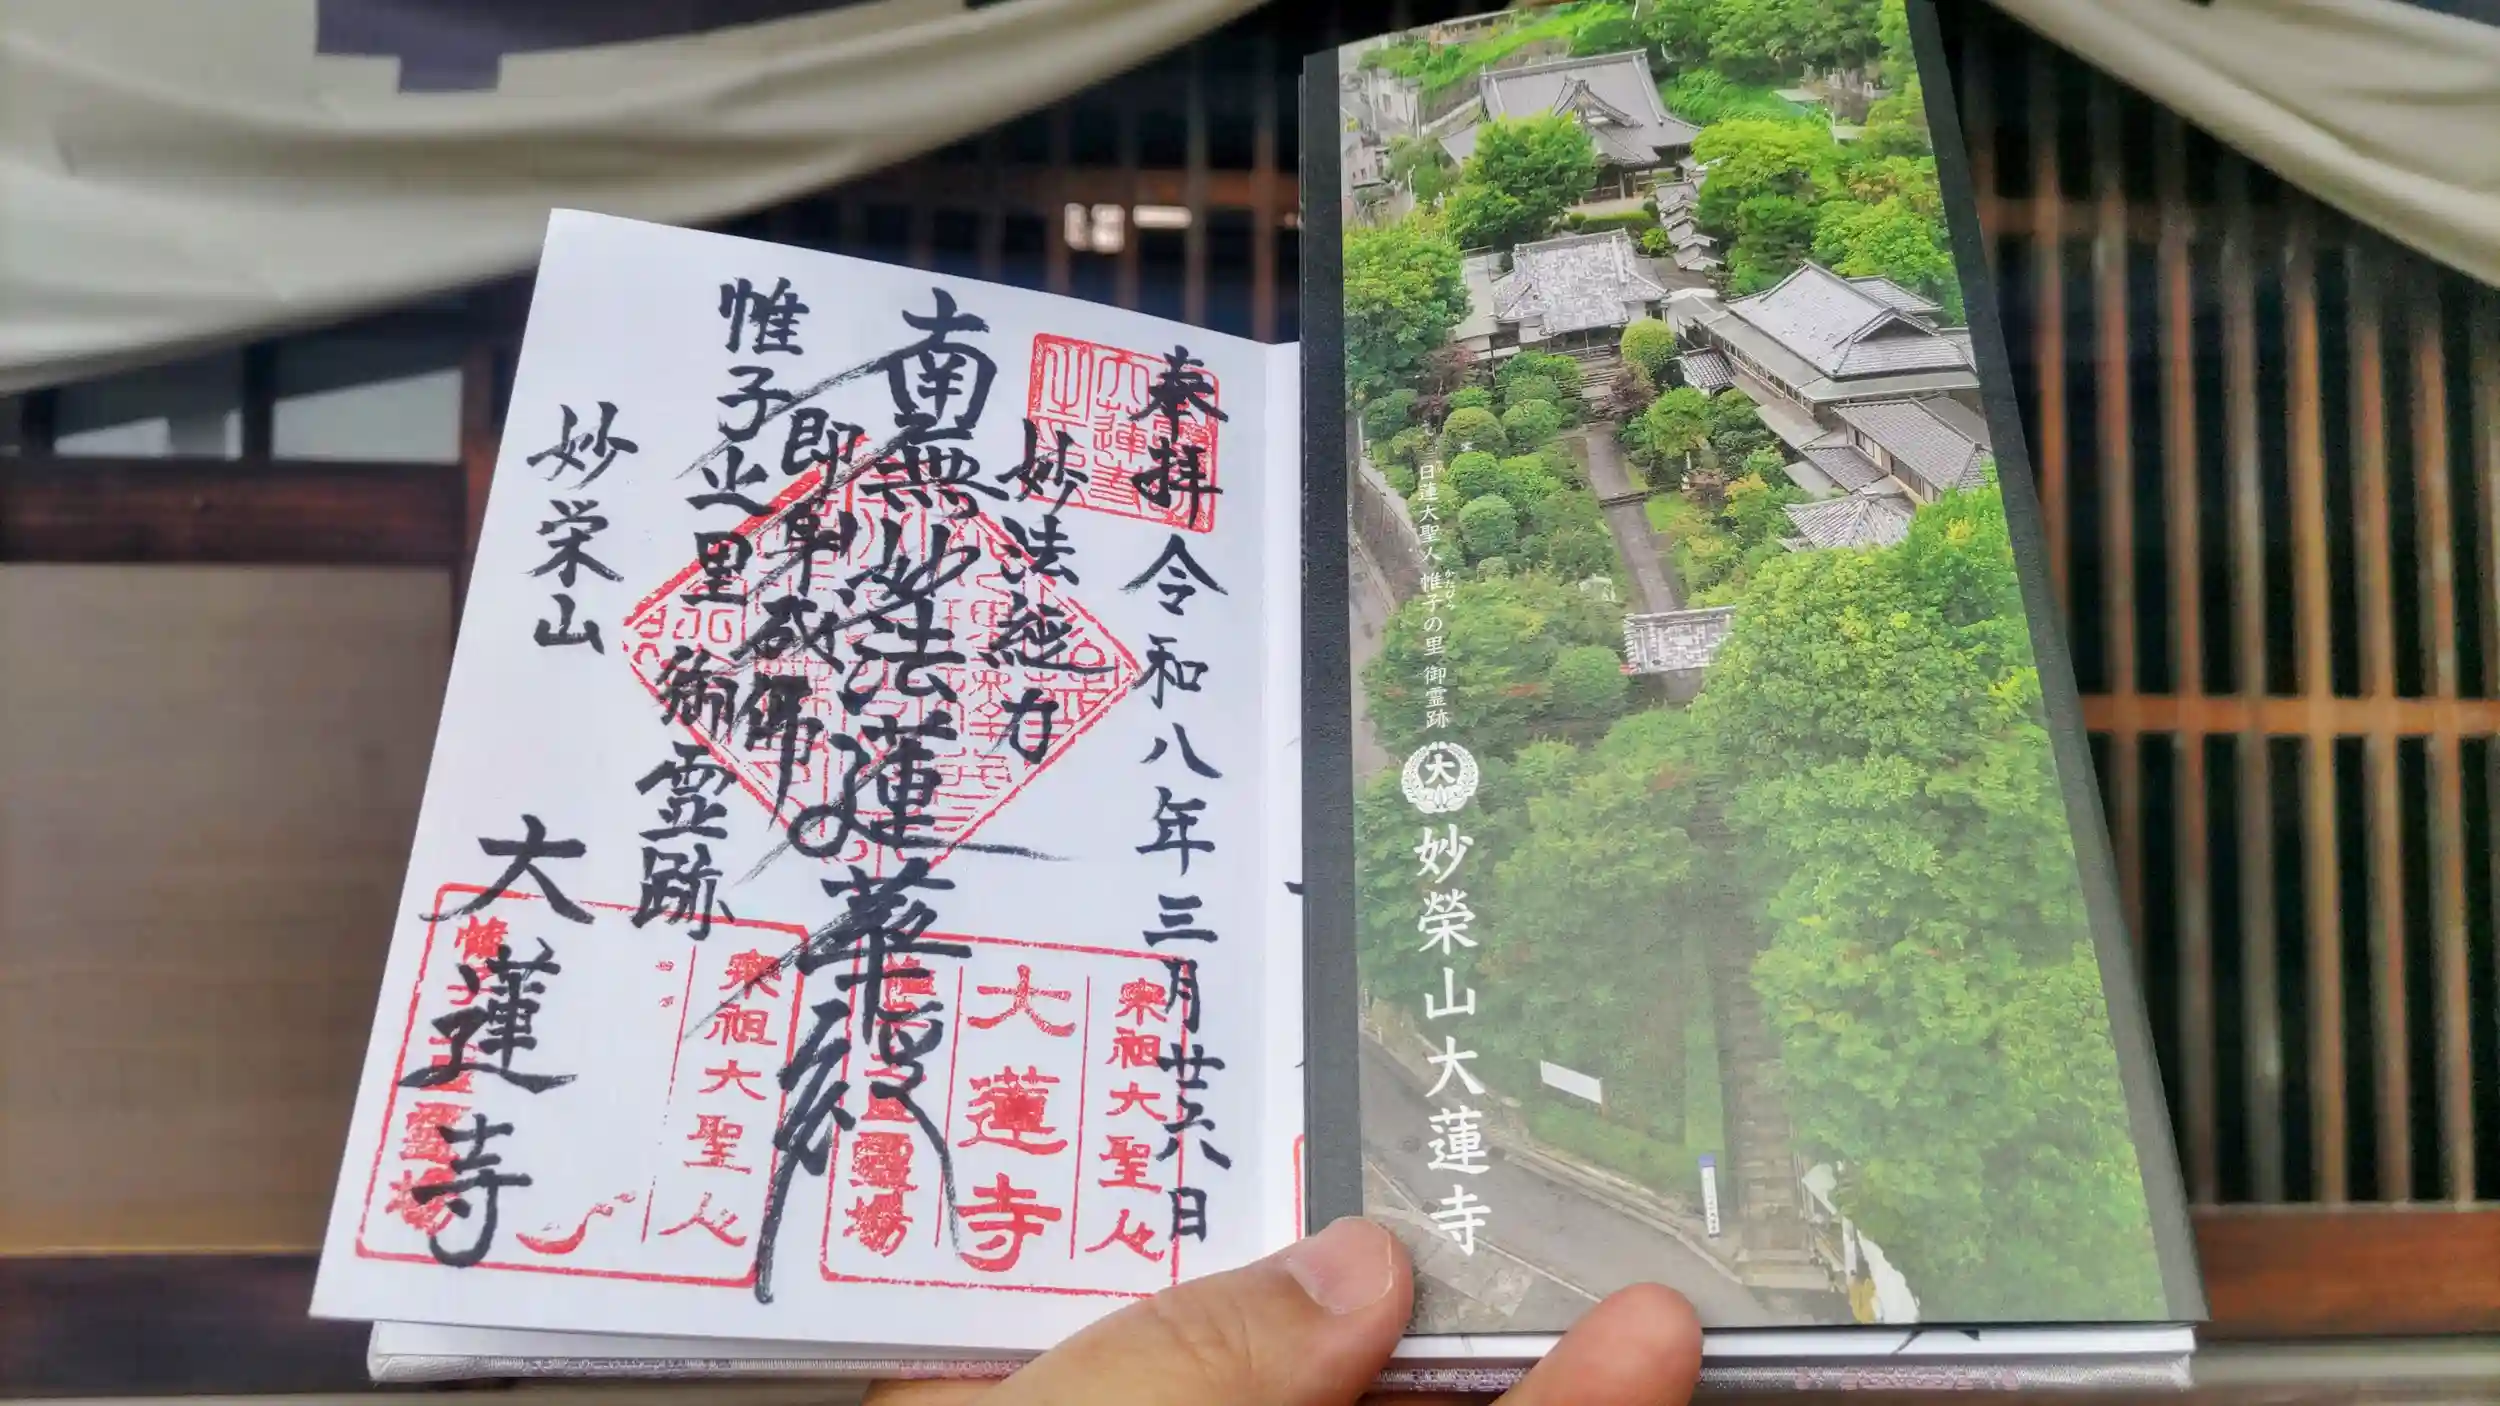 奉拝 令和八年三月廿六日
妙法経力
南無妙法蓮華経
即身成佛
惟子之里 御霊跡
妙栄山 大蓮寺
宗祖大聖人
大蓮寺
霊場
宗祖大聖人
霊場
日蓮大聖人 惟子の里 御霊跡
かたびら
大
妙榮山大蓮寺